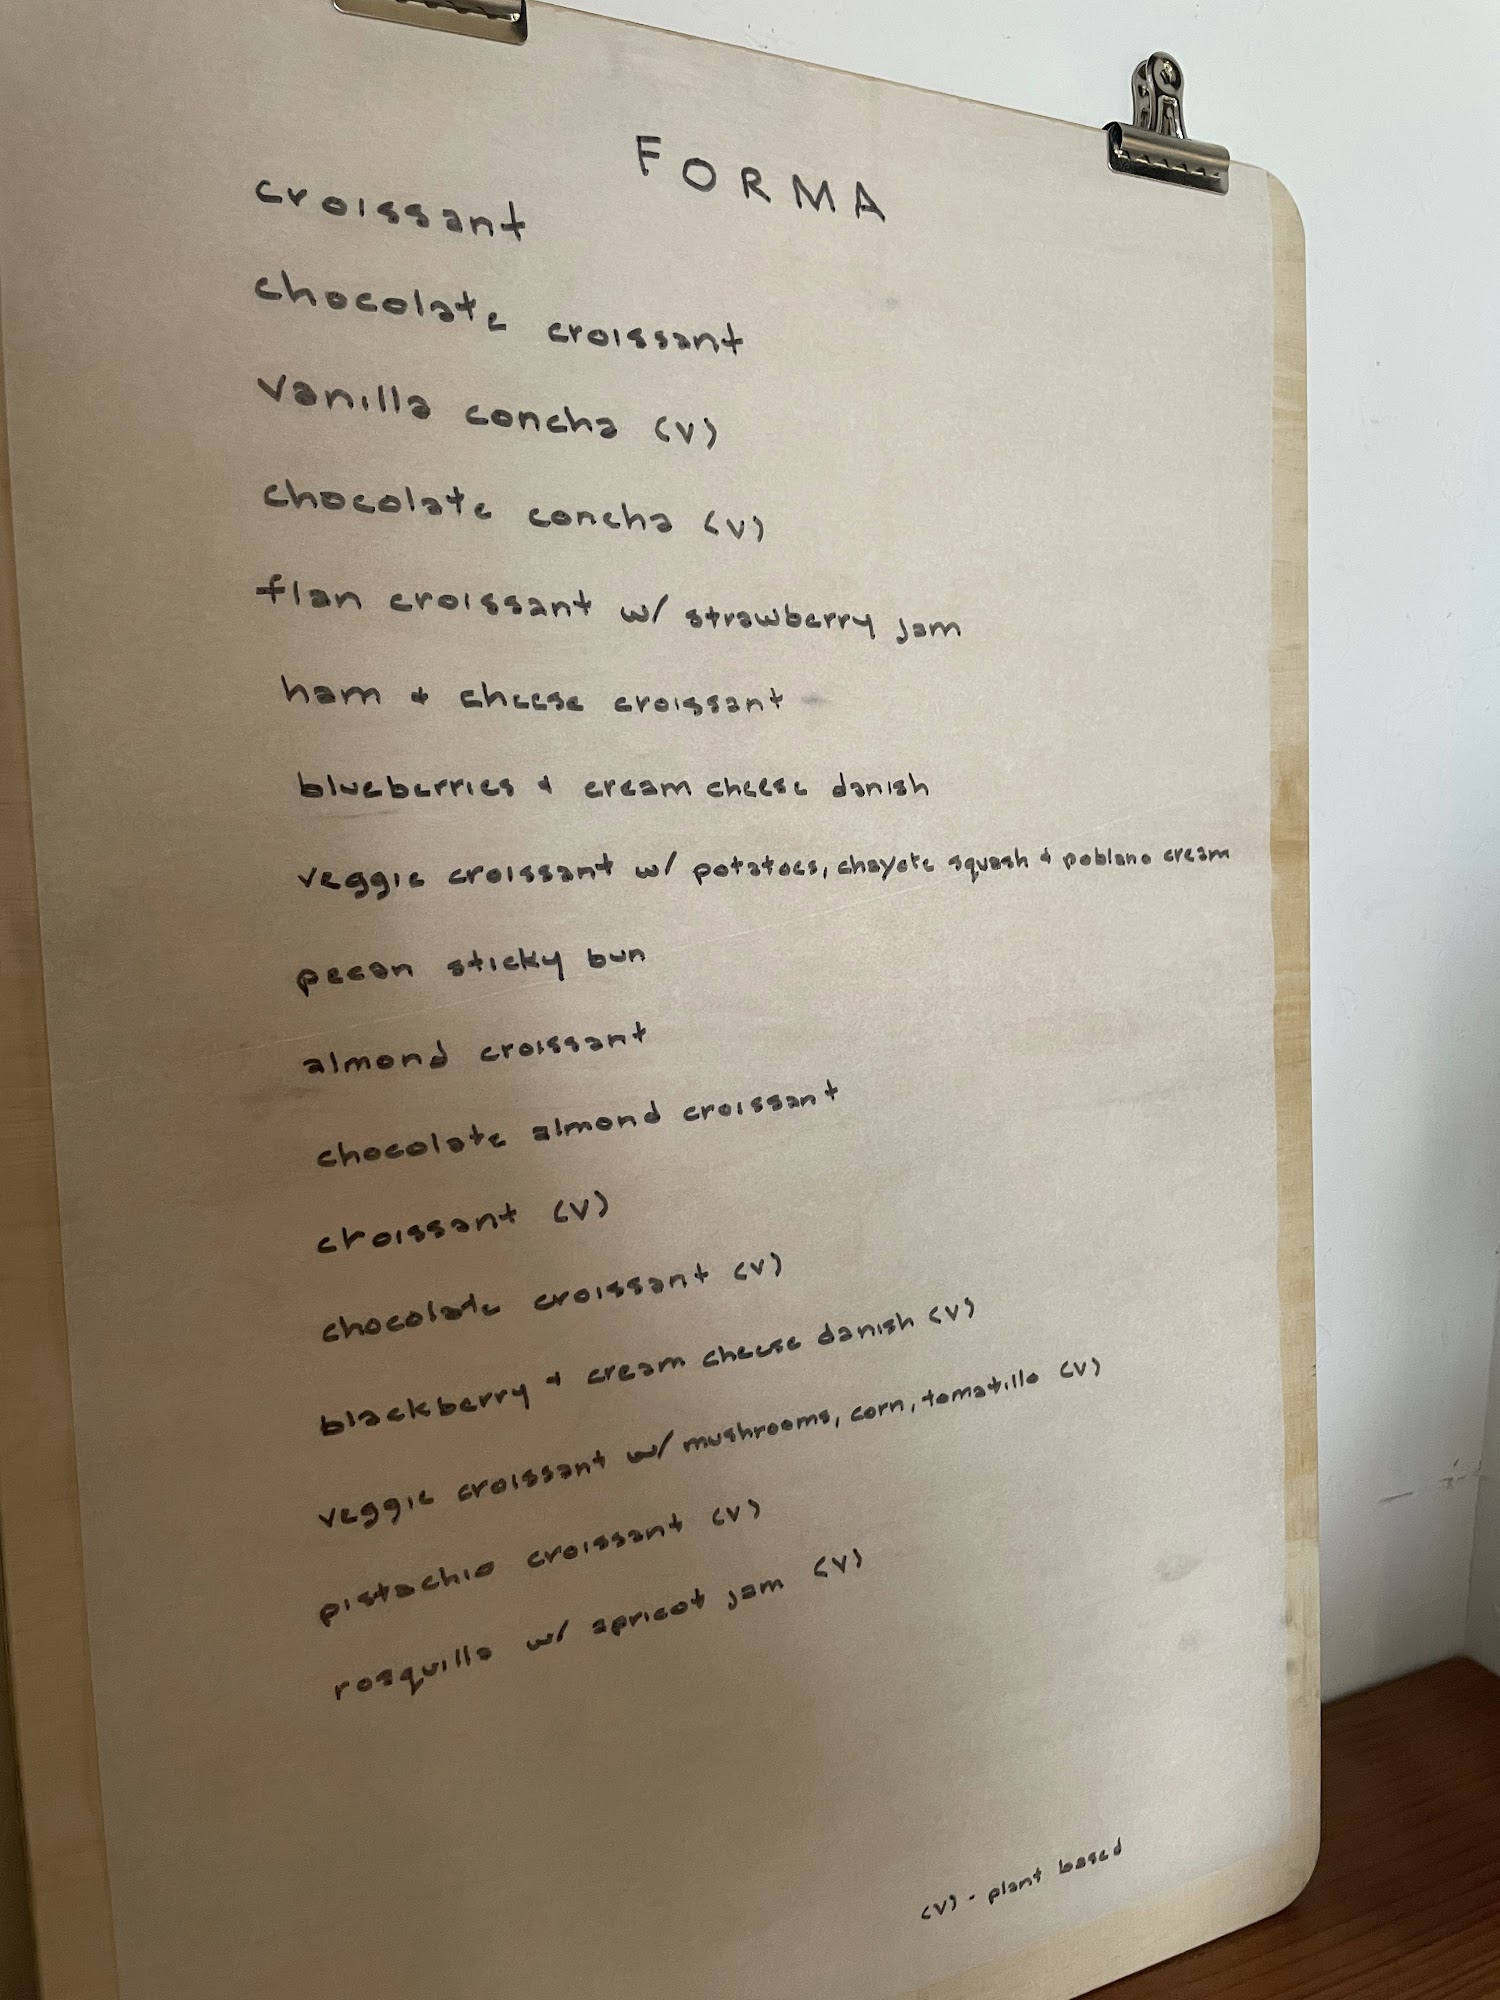 FORMA
croissant
chocolate croissant
vanilla concha (v)
chocolate concha (v)
flan croissant w/ strawberry jam
ham + cheese croissant
blueberries + cream cheese danish
veggie croissant w/ potatoes, chayote squash + poblano cream
pecan sticky bun
almond croissant
chocolate almond croissant
croissant (v)
chocolate croissant (v)
blackberry + cream cheese danish (v)
veggie croissant w/ mushrooms, corn, tomatillo (v)
pistachio croissant (v)
rosquilla w/ apricot jam (v)
(v) - plant based